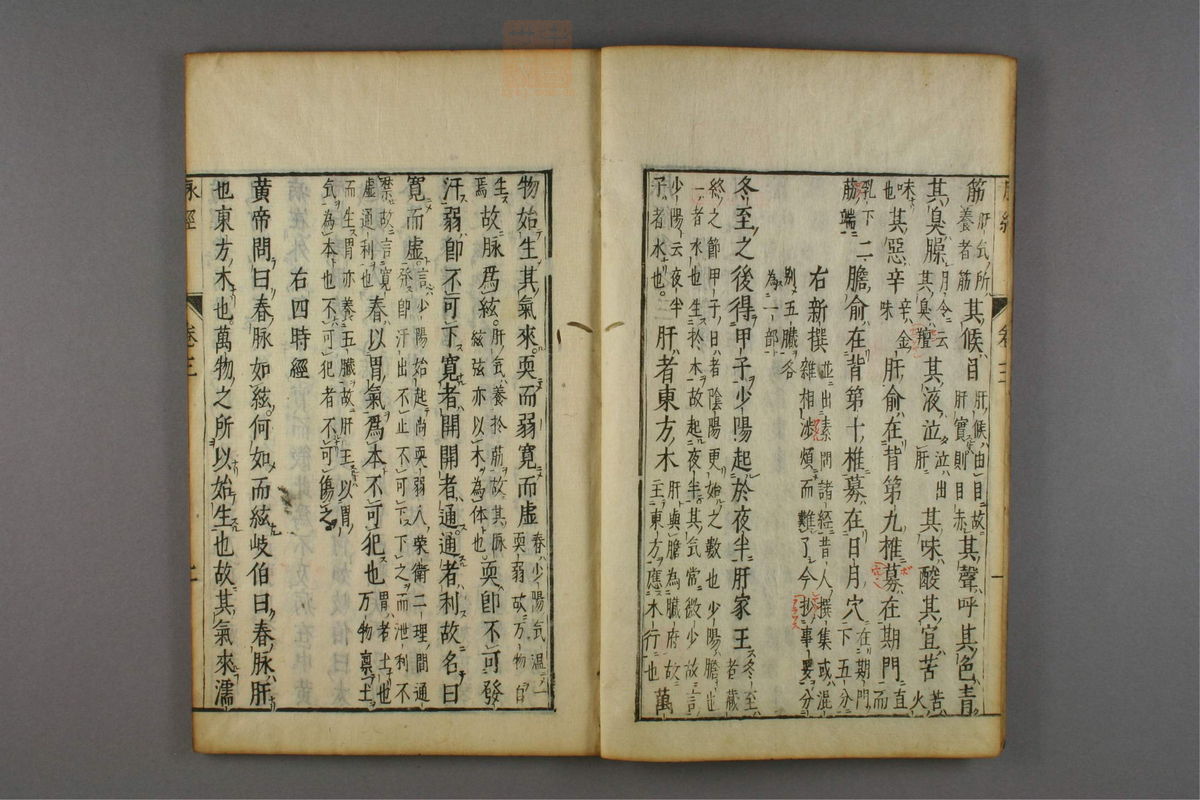 筋肝氣所養者筋其候目肝候出目故肝實則目赤其聲呼其色青
其臭臊月令云其臭羶其液泣泣出肝其味酸其宜苦苦火
味也其惡辛辛金味肝俞在背第九椎募在期門直兩
乳下二膽俞在背第十椎募在日月穴在期門下五分
筋端
右新撰並出素問諸經昔人撰集或混雜相涉煩而難了今抄事要分
別五臟各為一部
冬至之後得甲子少陽起於夜半肝家王冬至者歲
終之節甲子日者陰陽更始之數也少陽膽也
一者水也生於木故起夜半其氣常微少故言
少陽云夜半子者水也肝者東方木肝與膽為臟府故王東方應木行也萬
物始生其氣來耎而弱寬而虛春少陽氣溫耎弱故万物日
生焉故脉為絃肝氣養於筋故其脉絃弦亦以木為体也耎即不可發
汗弱即不可下寬者開開者通通者利故名曰
寬而虛言少陽始起尚耎弱人榮衛二理間通
發即汗出不止不可下下之而泄利不
禁故言寬虛通利也春以胃氣為本不可犯也胃者土也万物稟土
而生胃亦養五臟故肝王以胃
氣為本也不可犯者不可傷之
右四時經
黃帝問曰春脉如絃何如而絃岐伯曰春脉肝
也東方木也萬物之所以始生也故其氣來濡
脉經
卷三
一
脉經
卷三
二